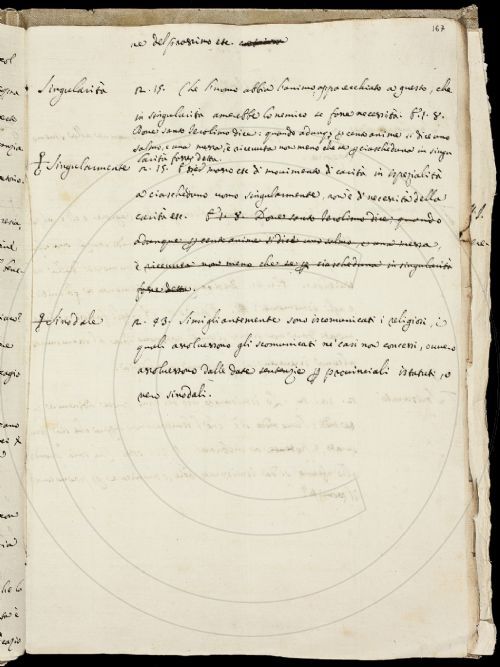 167
ne del prossimo etc.
Singularità n. 15. Che l'uomo abbia l'animo apparecchiato a questo, che
in singularità amerebbe lo nemico se fosse necessità. E t. 8.
Dove santo Ierolimo dice: quando adunque per cento anime si dice uno
salmo, e una messa, è ricevuta non meno che se per ciascheduna in singu
larità fosse detta.
Singularmente n. 15. etc di movimento di carità in ispezialità
a ciascheduno uomo singularmente, non è di necessità della
carità etc. E t. 8. Dove santo Ierolimo dice, quando
adunque per cento anime si dice uno salmo, e una messa,
è ricevuta non meno che se per ciascheduna in singularità
fosse detta.
Sinodale n. 93. Simigliantemente sono iscomunicati i religiosi, i
quali assolvessono gli scomunicati ne' casi non concessi, ovvero
assolvessono dalle date sentenzie per provinciali istatuti, o
vero sinodali.